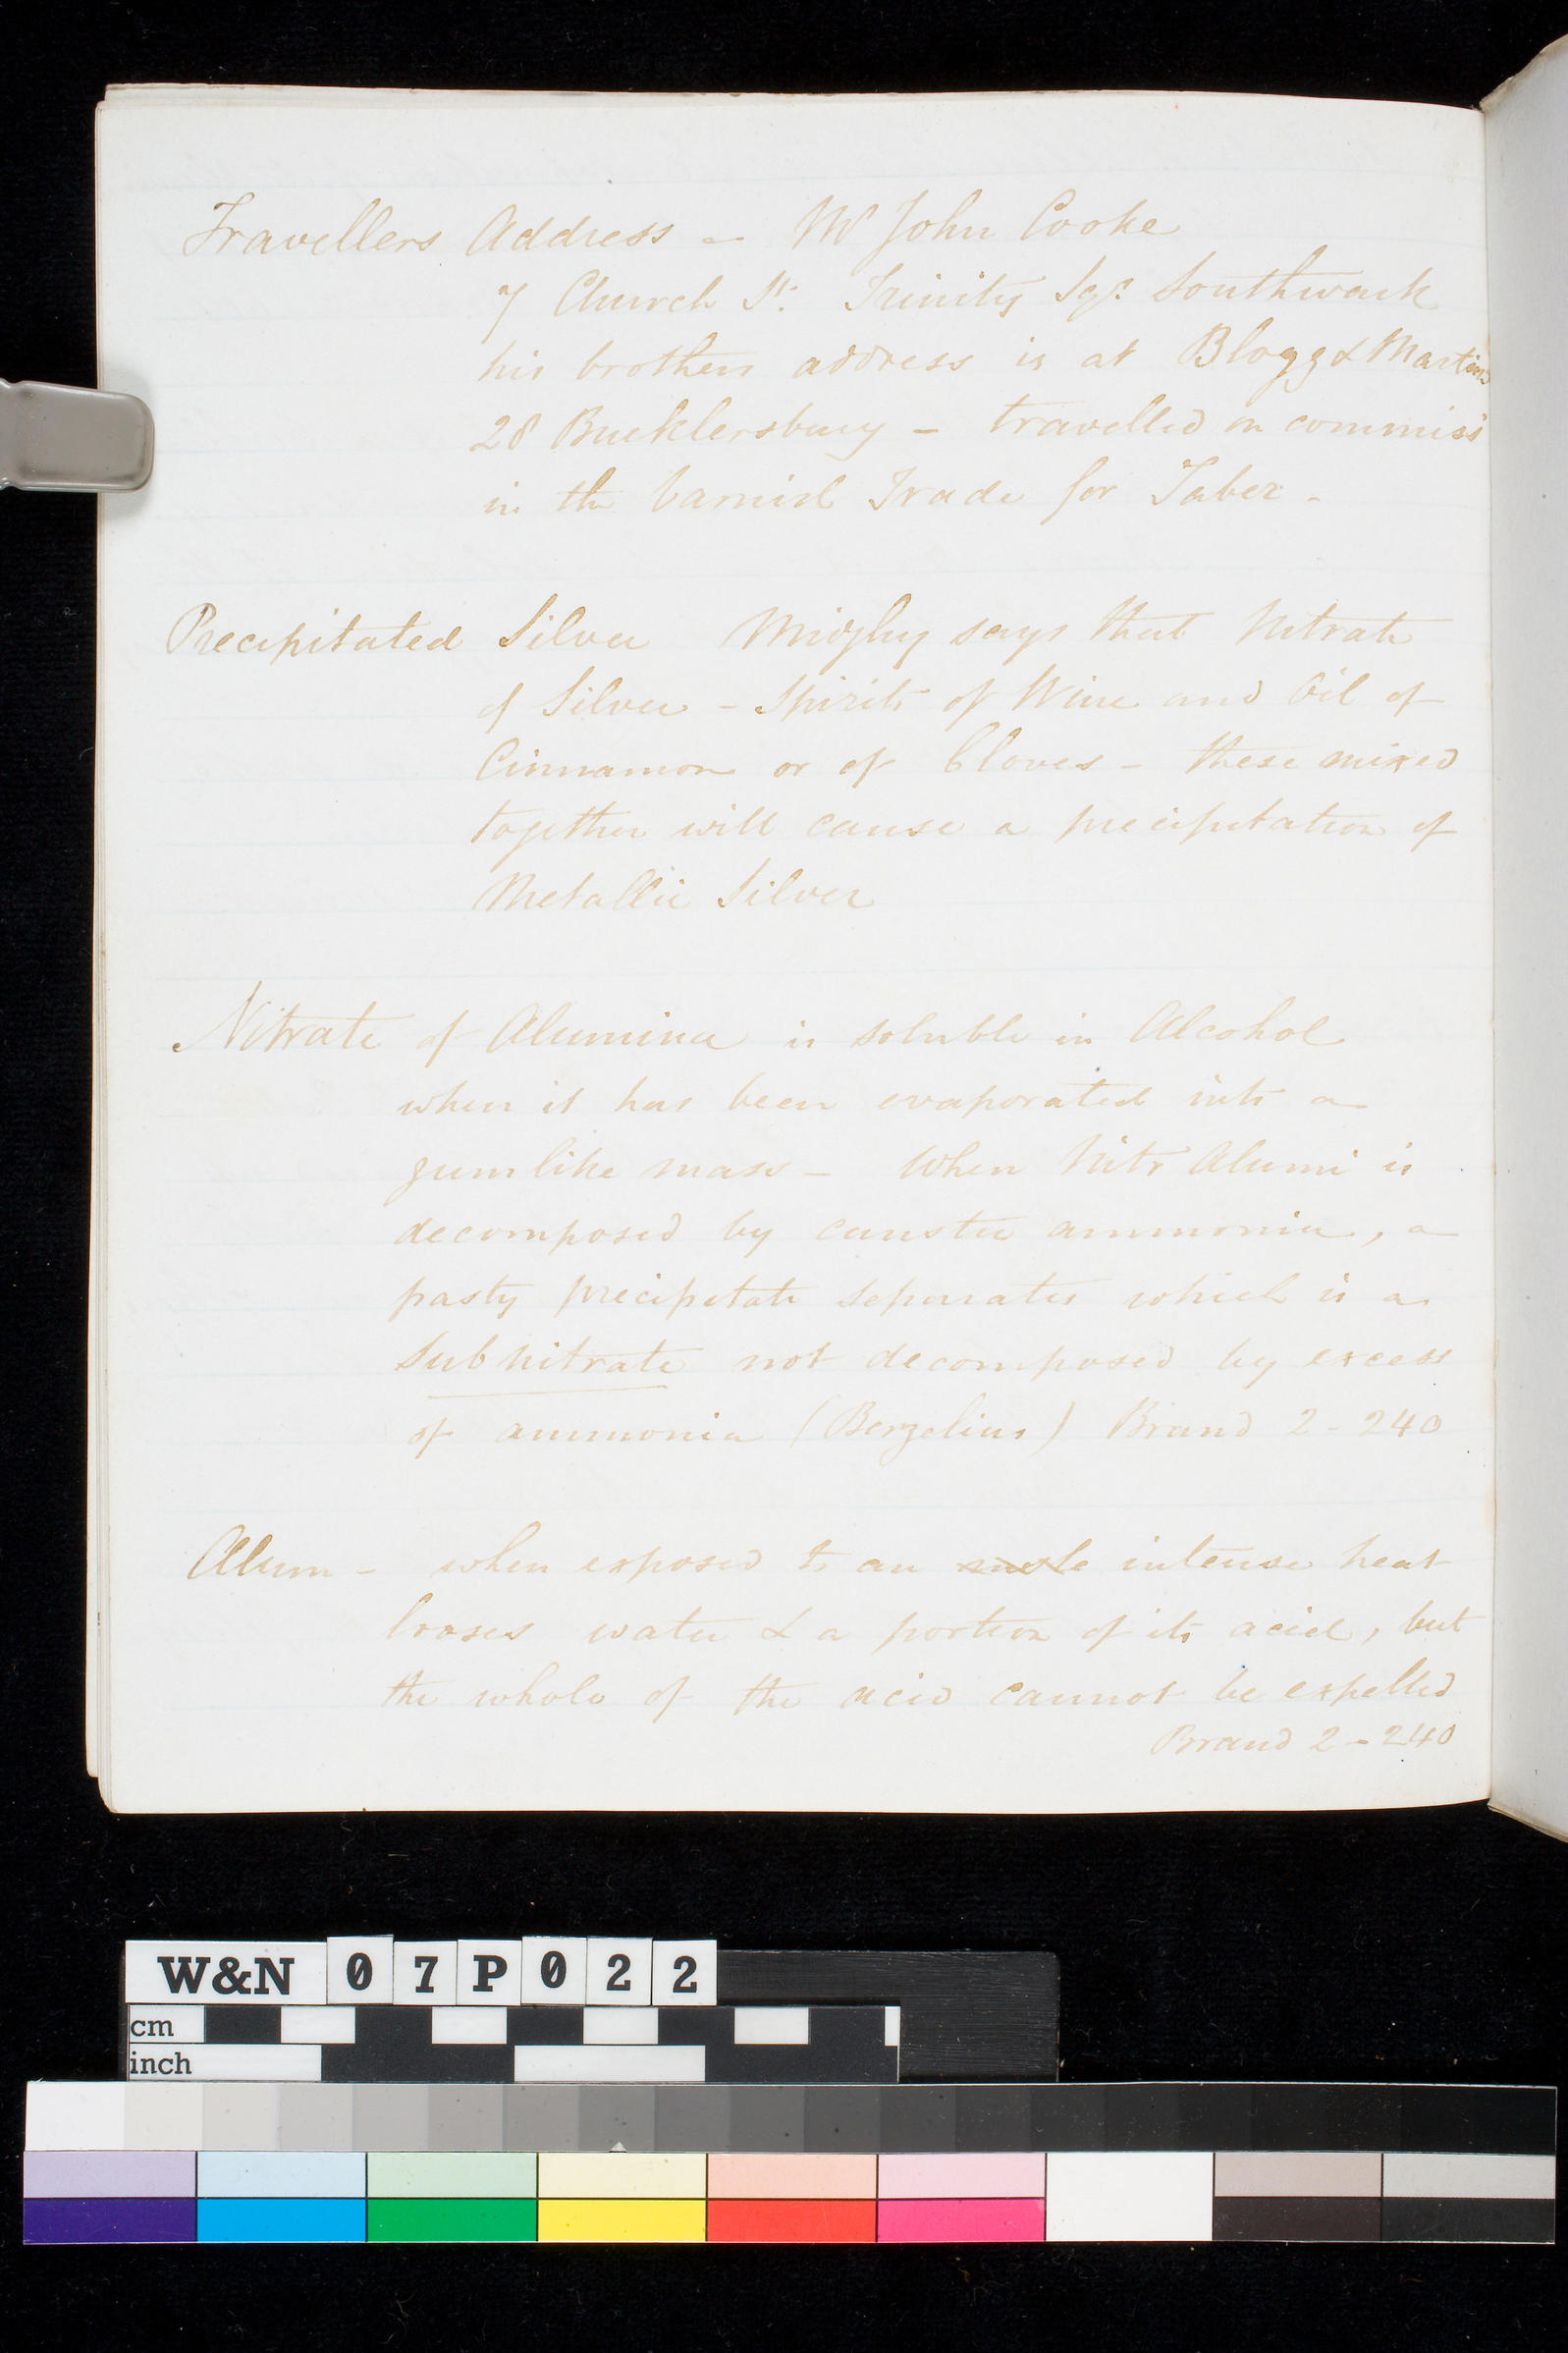 Travellers Address - Mr John Cooke
7 Church St. Trinity Sqr. Southwark
his brothers address is at Blogg & Martins
28 Bucklersbury - travelled on commiss
in the Varnish Trade for Taber -
Precipitated Silver Midgley says that Nitrate
of Silver - Spirits of Wine and Oil of
Cinnamon or of Cloves - these mixed
together will cause a precipitation of
Metallic Silver
Nitrate of Alumina is soluble in Alcohol
when it has been evaporated into a
gumlike mass - When Nitr Alumi is
decomposed by caustic ammonia, a
pasty precipitate separates which is a
Subnitrate not decomposed by excess
of ammonia (Berzelius) Brand 2-240
Alum - when exposed to an intense heat
looses water & a portion of its acid, but
the whole of the acid cannot be expelled
Brand 2-240
W&N 07P022
cm
inch